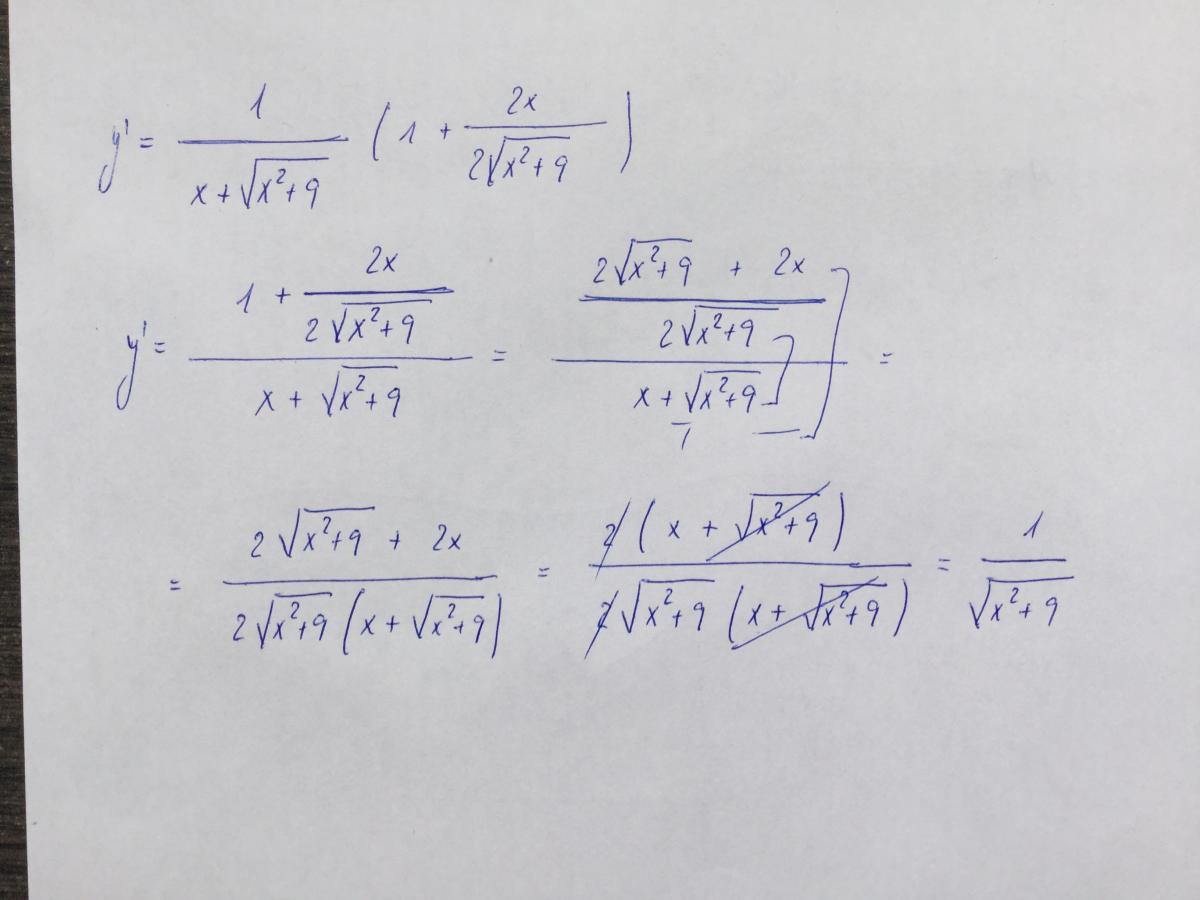 y' = 1/(x+√(x²+9)) (1 + 2x/(2√(x²+9)))
y' = (1 + 2x/(2√(x²+9)))/(x + √(x²+9)) = ((2√(x²+9) + 2x)/(2√(x²+9)))/(x + √(x²+9)) =
= (2√(x²+9) + 2x)/(2√(x²+9)(x + √(x²+9))) = 2(x + √(x²+9))/(2√(x²+9)(x + √(x²+9))) = 1/√(x²+9)